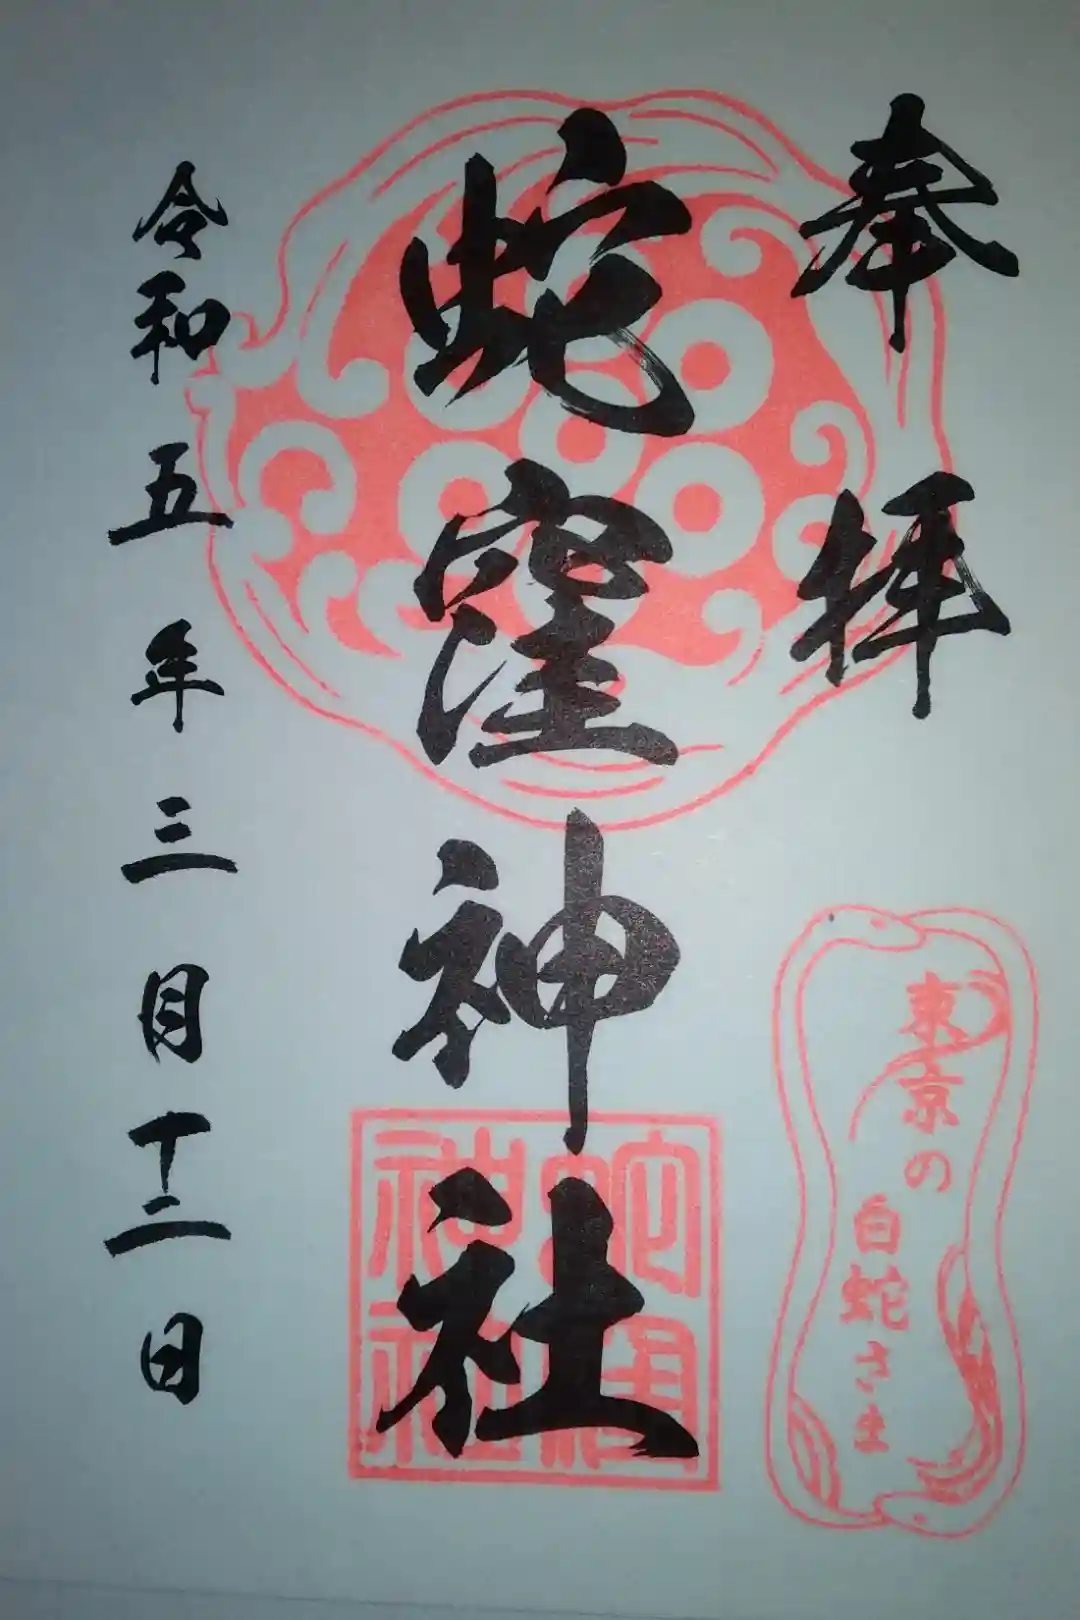 奉拝
蛇窪神社
令和五年三月十二日
東京の
白蛇さま
蛇窪
神社